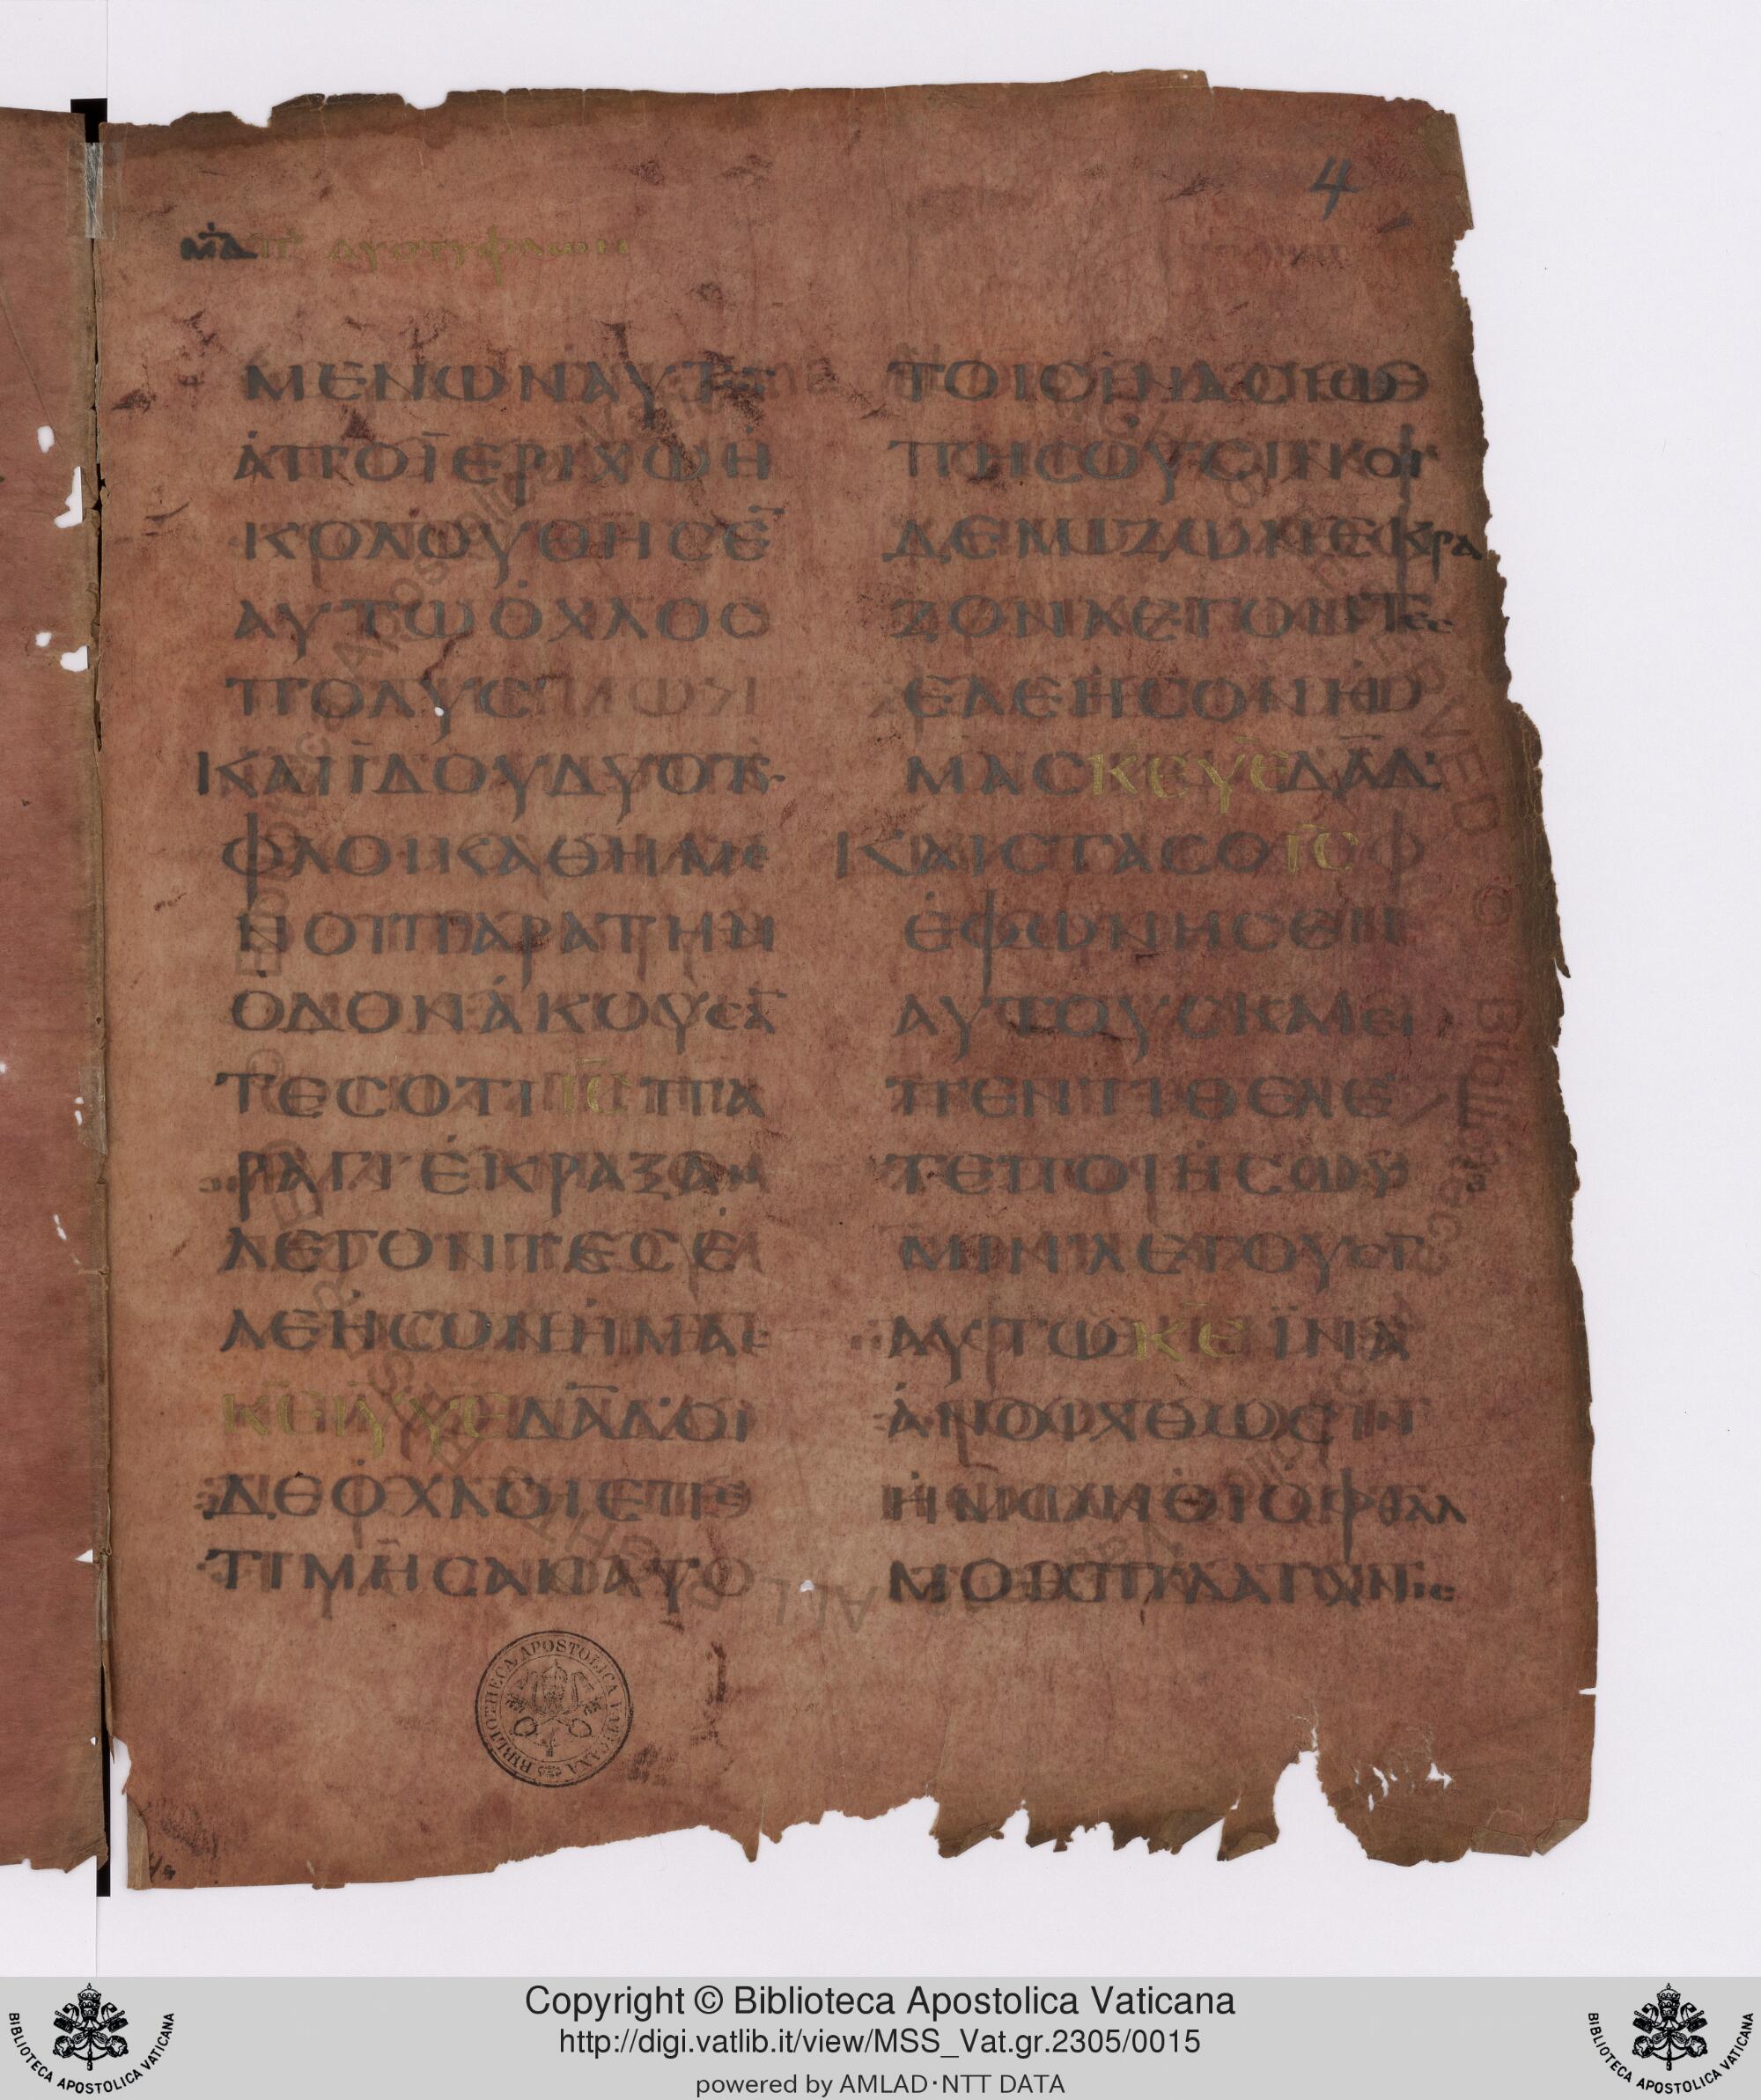 4
μ̅α̅ π̅ δυο τυφλων
ΜΕΝΩΝΑΥΤ
ἈΠΟΪΕΡΙΧΩἩ
ΚΟΛΟΥΘΗΣΕ̅
ΑΥΤΩὈΧΛΟΣ
ΠΟΛΥΣ
ΚΑΙΪΔΟΥΔΥΟΤΥ
ΦΛΟΙΚΑΘΗΜΕ
ΝΟΙΠΑΡΑΤΗΝ
ὉΔΟΝἈΚΟΥΣΑ̅
ΤΕΣΟΤΙΙ̅Σ̅ΠΑ
ΡΑΓΙἘΚΡΑΞΑΝ
ΛΕΓΟΝΤΕΣἘ
ΛΕΗΣΟΝΗΜΑΣ
Κ̅Ε̅ΥΥΕΔ̅Α̅Δ̅·ΟΙ
ΔΕὈΧΛΟΙΕΠΕ
ΤΙΜΗΣΑΝΑΥΤΟ
ΤΟΙΣΪΝΑΣΙΩ
ΠΗΣΩΣΙΝΟΙ
ΔΕΜΙΖΩΝΕΚΡΑ
ΖΟΝΛΕΓΟΝΤΕΣ
ἘΛΕΗΣΟΝΗ
ΜΑΣΚ̅Ε̅ΥΕΔ̅Α̅Δ̅·
ΚΑΙΣΤΑΣΟΙ̅Σ̅
ἘΦΩΝΗΣΕΝ
ΑΥΤΟΥΣΚΑΙΕΙ
ΠΕΝΤΙΘΕΛΕ
ΤΕΠΟΙΗΣΩΥ
ΜΙΝΛΕΓΟΥΣΙ
ΑΥΤΩΚ̅Ε̅ΪΝΑ
ἈΝΟΙΧΘΩΣΙΝ
ἩΜΩΝΟΙΟΦΘΑΛ
ΜΟΙΣΠΛΑΓΧΝΙΣ
BIBLIOTHECA APOSTOLICA VATICANA
Copyright © Biblioteca Apostolica Vaticana
http://digi.vatlib.it/view/MSS_Vat.gr.2305/0015
powered by AMLAD·NTT DATA
BIBLIOTECA APOSTOLICA VATICANA
BIBLIOTECA APOSTOLICA VATICANA